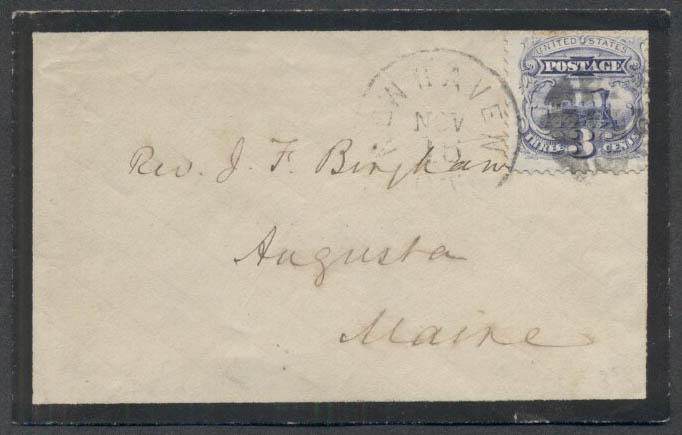 UNITED STATES
POSTAGE
THREE 3 CENTS
NEW HAVEN
NOV
Rev. J. F. Bingham
Augusta
Maine